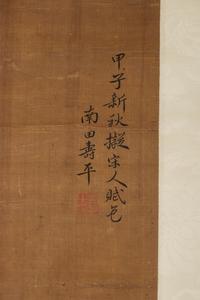 甲子新秋擬宋人賦色
南田壽平